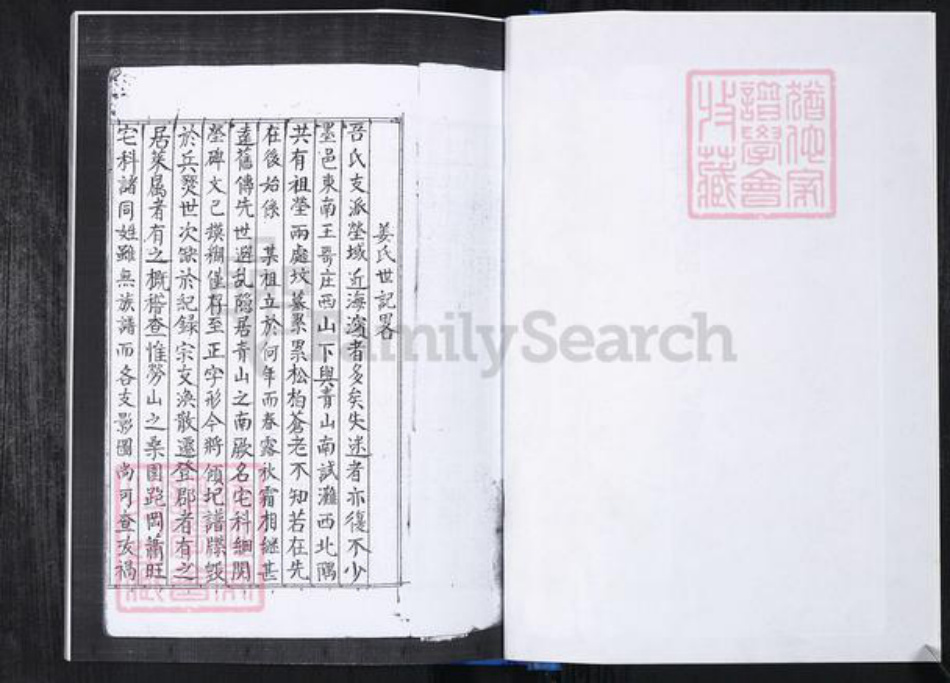 姜氏世記畧
吾氏支派塋域近海濵者多矣失迷者亦復不少
墨邑東南王哥庄西山下與青山南試灘西北隅
共有祖塋兩處坟墓累累松柏蒼老不知若在先
在後始係 某祖立於何年而春露秋霜相継甚
遠舊傳先世避乱隐居青山之南厥名宅科細閱
塋碑文已摸糊僅存至正字形今將傾圮譜牒毀
於兵燹世次缺於紀録宗支渙散遷登郡者有之
居萊属者有之概稽查惟勞山之桑園跑岡蕭旺
宅科諸同姓雖無族譜而各支影圖尚可查攷禍
猶他家
譜學會
收藏
FamilySearch